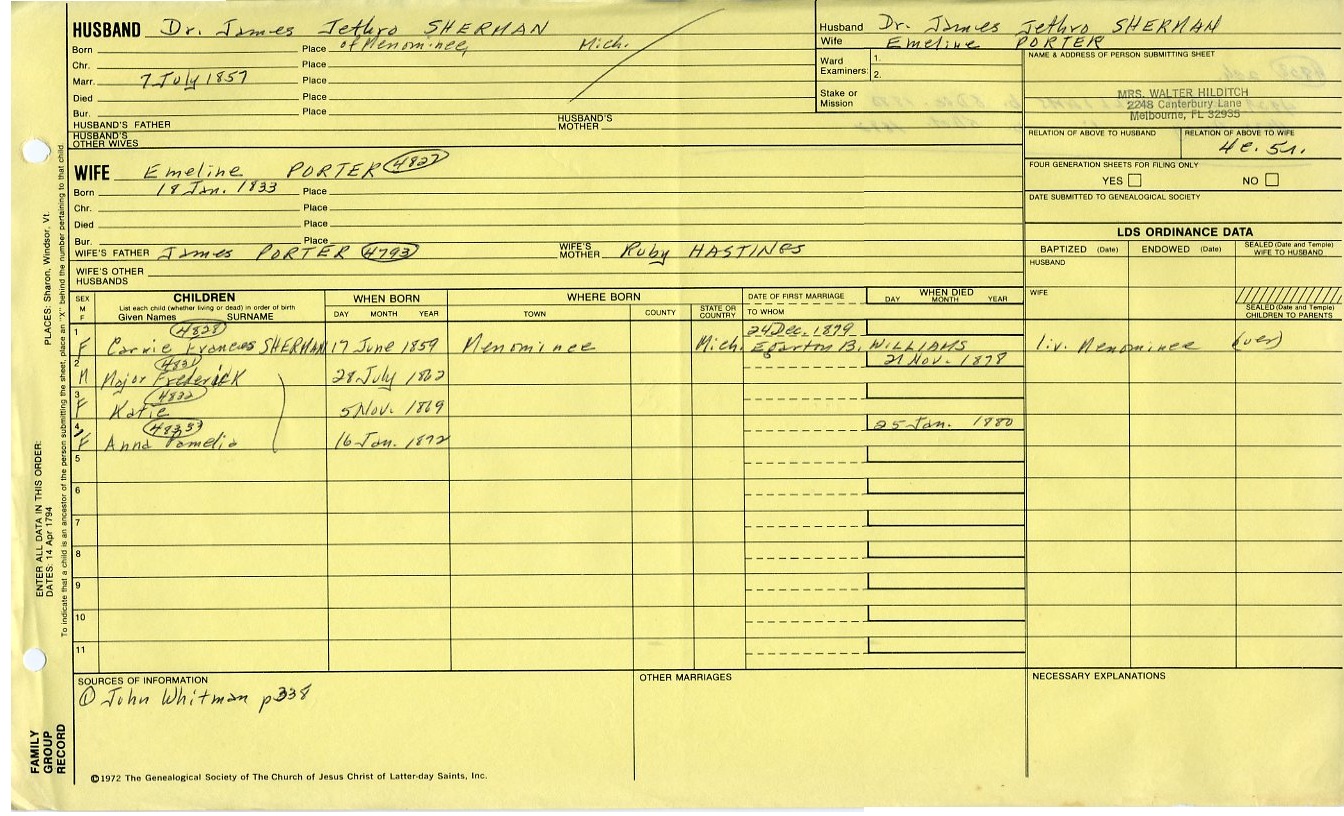 HUSBAND Dr. James Jethro SHERMAN
Born Place of Menominee, Mich.
Chr. Place
Marr. 7 July 1857 Place
Died Place
Bur. Place
HUSBAND'S FATHER HUSBAND'S MOTHER
HUSBAND'S OTHER WIVES
Husband Dr. James Jethro SHERMAN
Wife Emeline PORTER
Ward Examiners: 1.
2.
Stake or Mission
NAME & ADDRESS OF PERSON SUBMITTING SHEET
MRS. WALTER HILDITCH
2248 Canterbury Lane
Melbourne, FL 32935
RELATION OF ABOVE TO HUSBAND RELATION OF ABOVE TO WIFE
4c. 5r.
FOUR GENERATION SHEETS FOR FILING ONLY
YES NO
DATE SUBMITTED TO GENEALOGICAL SOCIETY
WIFE Emeline PORTER 4827
Born 18 Jan. 1833 Place
Chr. Place
Died Place
Bur. Place
WIFE'S FATHER James PORTER 4793 WIFE'S MOTHER Ruby HASTINGS
WIFE'S OTHER HUSBANDS
LDS ORDINANCE DATA
BAPTIZED (Date) ENDOWED (Date) SEALED (Date and Temple) WIFE TO HUSBAND
HUSBAND
WIFE
SEALED (Date and Temple) CHILDREN TO PARENTS
SEX M F CHILDREN WHEN BORN WHERE BORN DATE OF FIRST MARRIAGE WHEN DIED
List each child (whether living or dead) in order of birth
Given Names SURNAME DAY MONTH YEAR TOWN COUNTY STATE OR COUNTRY TO WHOM DAY MONTH YEAR
4828 24 Dec. 1879
1 F Carrie Frances SHERMAN 17 June 1859 Menominee Mich. Egarton B. WILLIAMS liv. Menominee (ver)
4831 21 Nov. 1878
2 M Major Frederick 28 July 1862
4832
3 F Katie 5 Nov. 1869
4833 25 Jan. 1880
4 F Anna Pamelia 16 Jan. 1872
5
6
7
8
9
10
11
SOURCES OF INFORMATION
① John Whitman p338
OTHER MARRIAGES
NECESSARY EXPLANATIONS
©1972 The Genealogical Society of The Church of Jesus Christ of Latter-day Saints, Inc.
PLACES: Sharon, Windsor, Vt.
ENTER ALL DATA IN THIS ORDER:
DATES: 14 Apr 1794
To indicate that a child is an ancestor of the person submitting the sheet, place an "X" behind the number pertaining to that child.
FAMILY GROUP RECORD